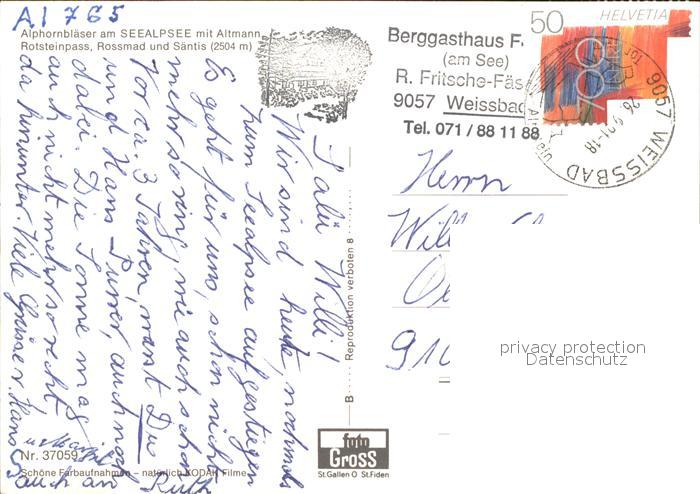 AI 765
Alphornbläser am SEEALPSEE mit Altmann,
Rotsteinpass, Rossmad und Säntis (2504 m)
Berggasthaus F.
(am See)
R. Fritsche-Fäs
9057 Weissbad
Tel. 071 / 88 11 88
50 HELVETIA
700
9057 WEISSBAD
Herrn
Will
910
privacy protection
Datenschutz
Salü Willi!
Wir sind heute nochmals
zum Seealpsee aufgestiegen
Es geht für uns, schon nicht
mehr so ring, wie auch schon
Vor ca. 3 Jahren, warst Du
und Hans Durrer, auch noch
dabei. Die Sonne mag
auch nicht mehr so recht
da hinunter. Viele Grüsse v. Hans
u.
auch an Ruth
Reproduktion verboten 8
B
foto
GROSS
St. Gallen O St. Fiden
Nr. 37059
Schöne Farbaufnahmen – natürlich KODAK Filme